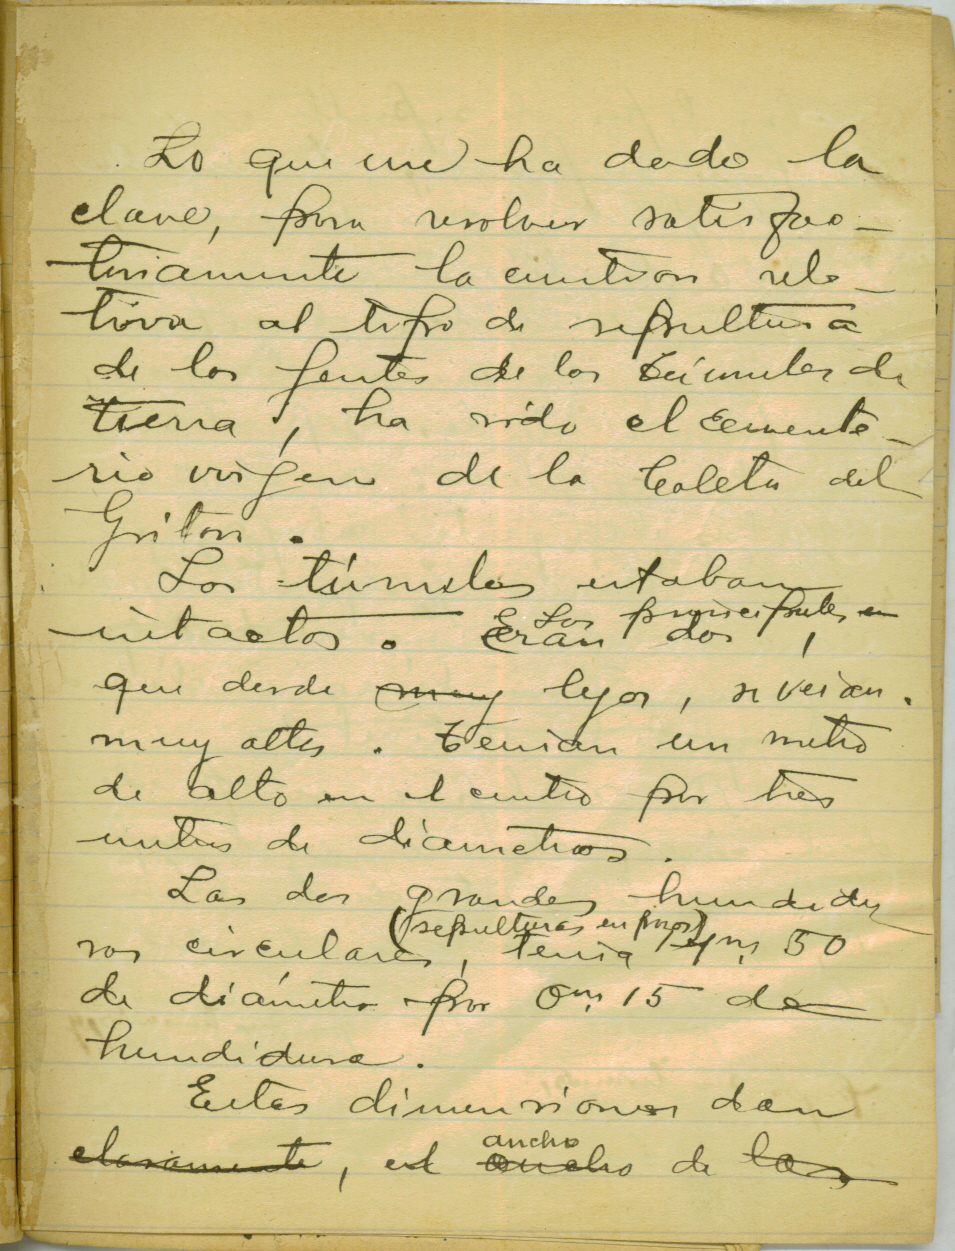 Lo que me ha dado la
clave, para resolver satisfac-
toriamente la cuestion rela-
tiva al tipo de sepultura
de las gentes de los túmulos de
tierra, ha sido el cemente-
rio virgen de la Caleta del
Griton.
Los túmulos estaban
Los principales en
intactos. Eran dos,
que desde muy lejos, se veian.
muy altos. Tenian un metro
de alto en el centro por tres
metros de diametros.
Las dos grandes hundidu
(sepulturas en pozos)
ras circulares, tenia 4m, 50
de diámetro por 0m, 15 de
hundidura.
Estas dimensiones dan
ancho
claramente, el ancho de las